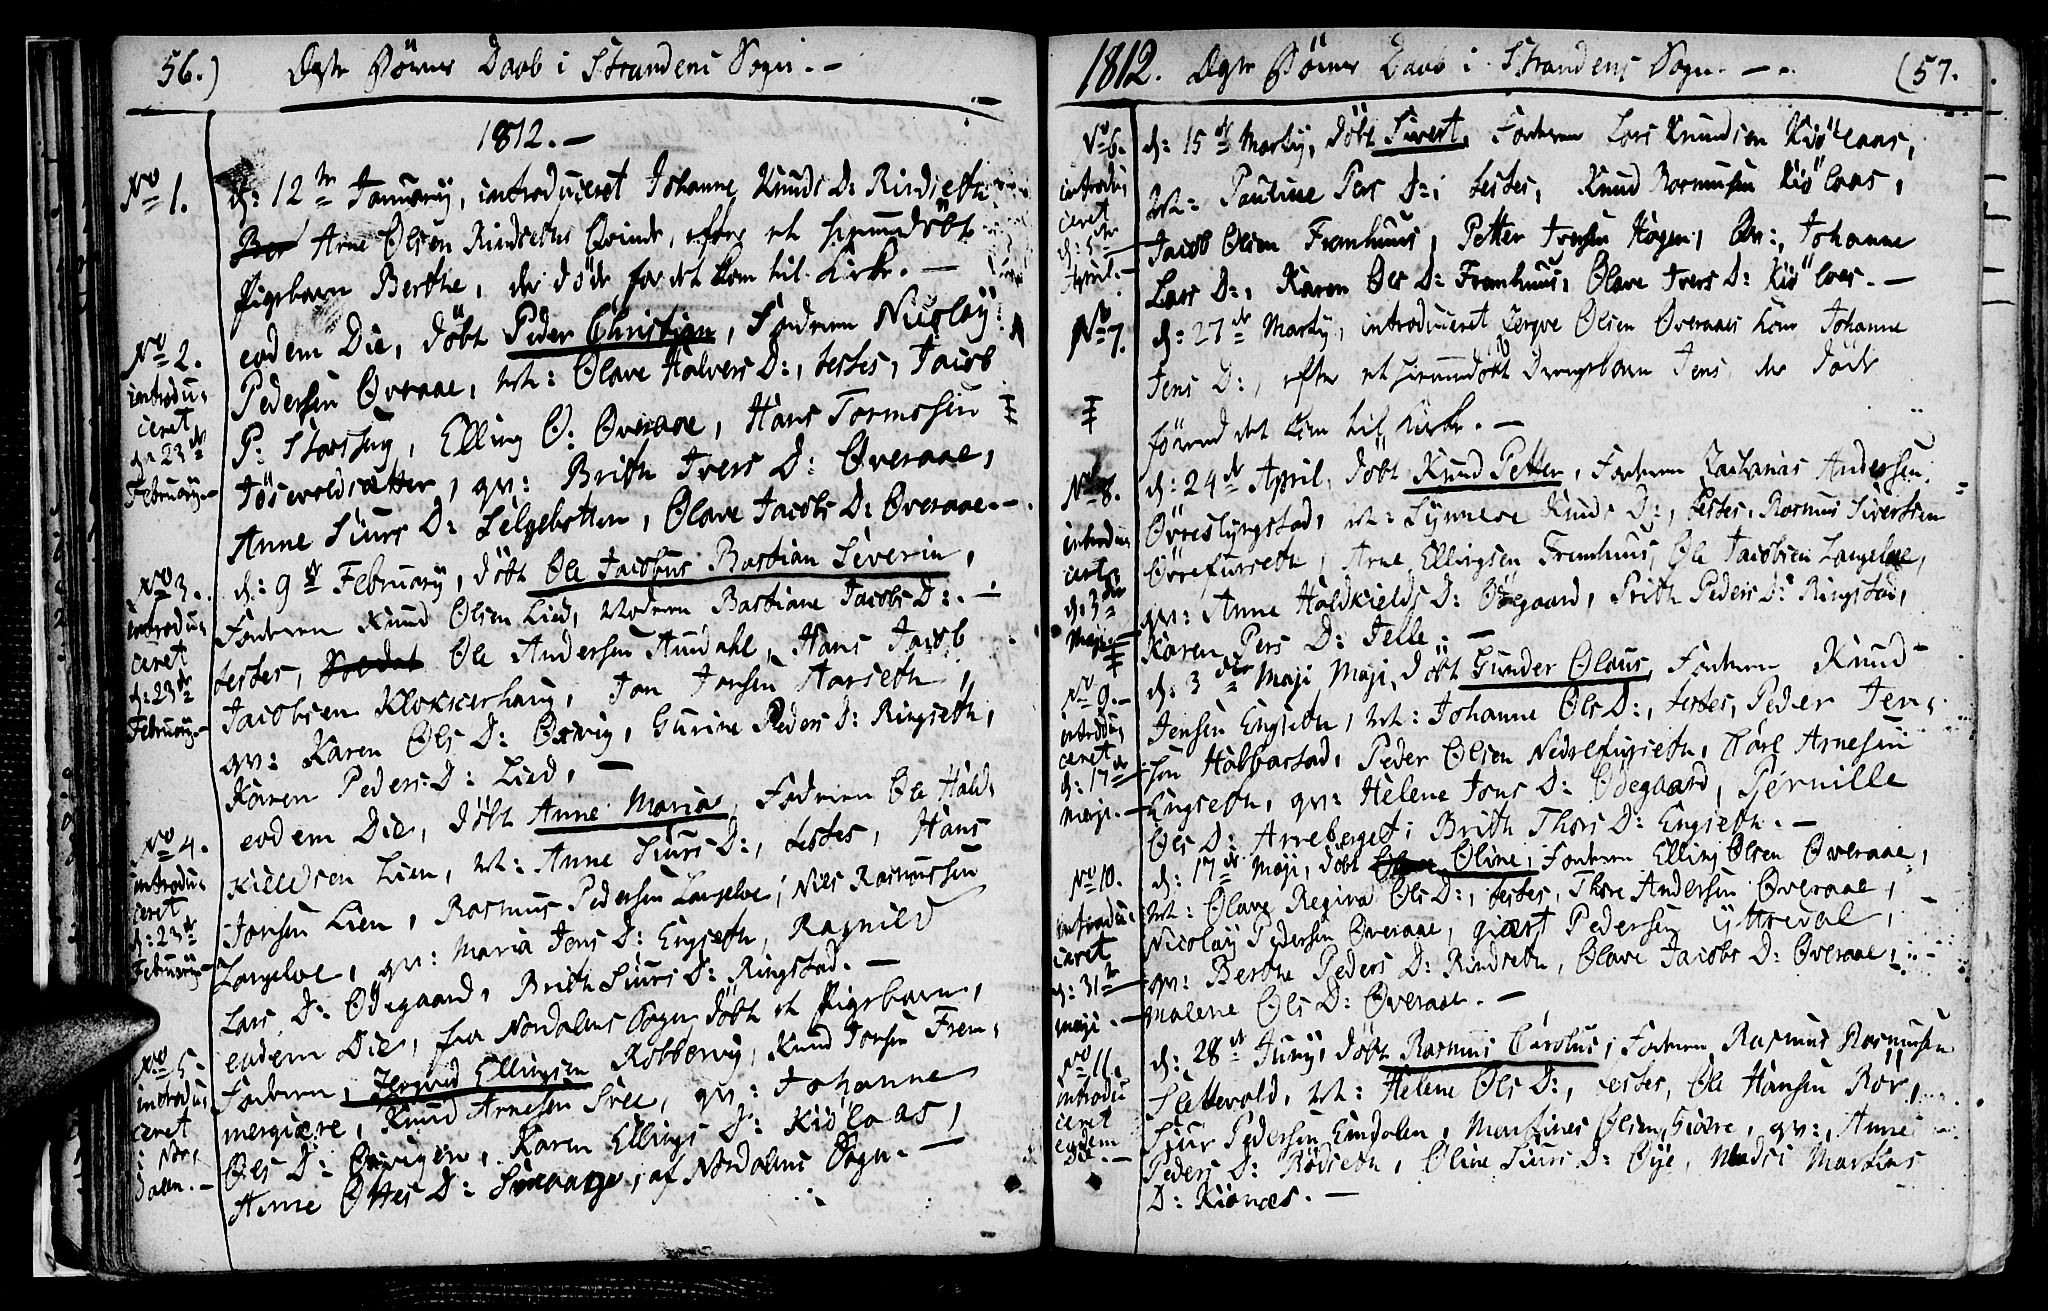 56.) Ægte Börns Daab i Strandens Sogn. -
1812. -
No 1.
d: 12te Januarÿ, introduceret Johanne Knuds D: Rindseth
Arne Olsen Rindseths Qvinde, efter et hiemmedöbt
Pigebarn Berthe, der döde for det kom til Kirke. -
No 2.
introdu-
ceret
d: 23de
Februarÿ-
eodem Die, döbt Peder Christian, Faderen Nicolaÿ
Pedersen Överaae, M: Olave Halvers D:, testes, Jacob
P: Storhaug, Elling O: Överaae, Hans Tormosen
qv: Brith Ivers D: Överaae,
Anne Siurs D: Selgebotten, Olave Jacobs D: Överaae. -
No 3.
introdu-
ceret
d: 23de
Februarÿ-
d: 9de Februarÿ, döbt Ole Jacobus Bastian Severin,
Faderen Knud Olsen Lied, Moderen Bastiane Jacobs D:. -
testes, Ole Andersen Aursdahl, Hans Jacob
Jacobsen Klokkerhaug, Jon Jonsen Hauseth,
qv: Karen Ols D: Oxvig, Gurine Peders D: Ringseth,
Karen Peders D: Lied, -
No 4.
introdu-
ceret
d: 23de
Februarÿ-
eodem Die, döbt Anne Maria, Faderen Ole Hald-
kieldsen Lien, M: Anne Siurs D:, testes, Hans
Jonsen Lien, Rasmus Pedersen Langelve, Niels Rasmussen
Langelve, qv: Maria Jens D: Engseth, Ragnild
Lars D: Ödegaard, Brith Siurs D: Ringstad. -
No 5.
introdu-
ceret
i Nor-
dalen. -
eodem Die, fra Nordalens Sogn döbt et Pigebarn,
Faderen, Jergvid Ellingsen Robbervig, Knud Jonsen Frem-
mergiære, Knud Arnesen Sree, qv: Johanne
Ols D: Övigen, Karen Ellings D: Kiölaas,
Anne Ottes D: af Nordalens Sogn. -
1812. Ægte Börns Daab i Strandens Sogn. - - (57.
No 6.
introdu-
ceret
d: 5te
April. -
d: 15de Martÿ, döbt Sivert, Faderen Lars Knudsen Kiölaas,
M: Pauline Pers D:, testes, Knud Rasmusen Kiölaas,
Jacob Olsen Framhuus, Petter Iversen Hogen, Qv:, Johanne
Lars D:, Karen Ols D: Framhuus, Olave Ivers D: Kiölaas. -
No 7.
d: 27de Martÿ, introduceret Jergve Olsen Överaaes Kone Johanne
Jens D:, efter et hiemmedöbt Drengebarn Jens, der döde
förend det kom til Kirke. -
No 8.
introdu-
ceret
d: 3die
Maji. -
d: 24de April, döbt Knud Petter, Faderen Zacharias Andersen
Övrelyngstad, M: Synneve Knuds D:, testes, Rasmus Sivertsen
Övrefurseth, Arne Ellingsen Fremhuus, Ole Jacobsen Langelve,
qv: Anne Haldkields D: Ödegaard, Brith Peders D: Ringstad,
Karen Pers D: Jelle. -
No 9. -
introdu-
ceret
d: 17de
Maji. -
d: 3die Maji Maji, döbt Gunder Olaus, Faderen Knud
Jensen Engseth, M: Johanne Ols D:, testes, Peder Jen-
sen Habbastad, Peder Olsen Nedrefurseth, Karl Arnesen
Engseth, qv: Helene Jons D: Ödegaard, Pernille
Ols D: Arneberget, Brith Thors D: Engseth. -
No 10.
introdu-
ceret
d: 31te
Maji. -
d: 17de Maji, döbt Oline, Faderen Elling Olsen Överaae,
M: Olave Regina Ols D:, testes, Thore Andersen Överaae,
Nicolaÿ Pedersen Överaae, giært Pedersen Uttredal,
qv: Berthe Peders D: Rindseth, Olave Jacobs D: Överaae,
Malene Ols D: Överaae. -
No 11.
introdu
ceret
eodem
Die. -
d: 28de Junÿ, döbt Rasmus Carolus, Faderen Rasmus Rasmusen
Slettevold, M: Helene Ols D:, testes, Ole Hansen Röv,
Siur Pedersen Emdalen, Martines Olsen Giære, qv:, Anne
Peders D: Rödseth, Oline Siurs D: Öye, Madsi Martins
D: Kiönaes. -